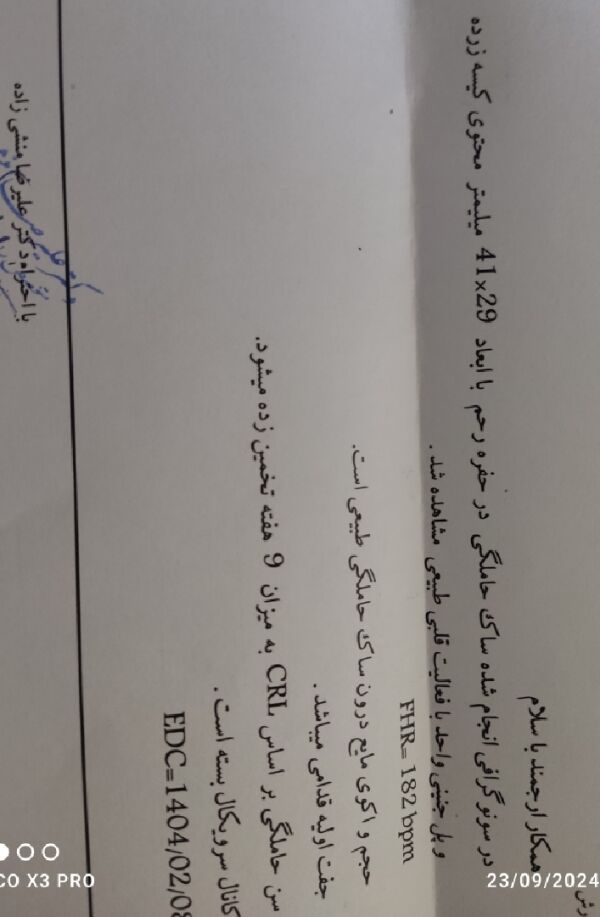 همکار ارجمند با سلام
در سونوگرافی انجام شده ساک حاملگی در حفره رحم با ابعاد 41x29 میلیمتر محتوی کیسه زرده
و پل جنینی واحد با فعالیت قلبی طبیعی مشاهده شد.
FHR= 182 bpm
حجم و اکوی مایع درون ساک حاملگی طبیعی است.
جفت اولیه قدامی میباشد.
سن حاملگی بر اساس CRL به میزان 9 هفته تخمین زده میشود.
کانال سرویکال بسته است.
EDC=1404/02/08
با احترام دکتر علیرضا منشی زاده
CO X3 PRO
23/09/2024